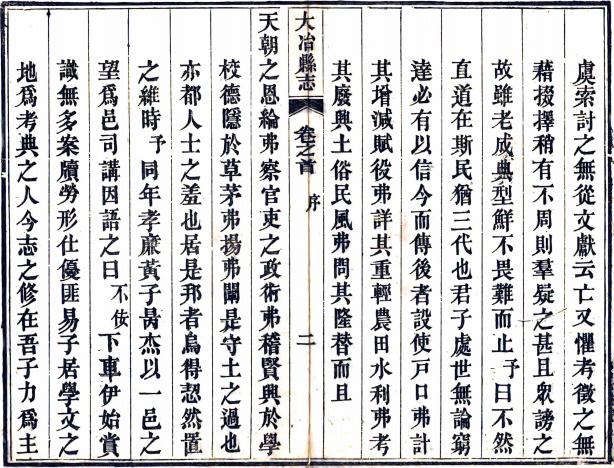 虞索討之無從文獻云亡又懼考徵之無
藉掇擇稍有不周則羣疑之甚且衆謗之
故雖老成典型鮮不畏難而止予曰不然
直道在斯民猶三代也君子處世無論窮
達必有以信今而傳後者設使戸口弗計
其增減賦役弗詳其重輕農田水利弗考
其廢興土俗民風弗問其隆替而且
大冶縣志 卷之首 序 二
天朝之恩綸弗察官吏之政術弗稽賢興於學
校德隱於草茅弗揚弗闡是守土之過也
亦都人士之羞也居是邦者烏得恝然置
之維時予同年孝廉黃子昺杰以一邑之
望爲邑司講因語之曰不佞下車伊始賞
識無多案牘勞形仕優匪易子居學文之
地爲考典之人今志之修在吾子力爲主